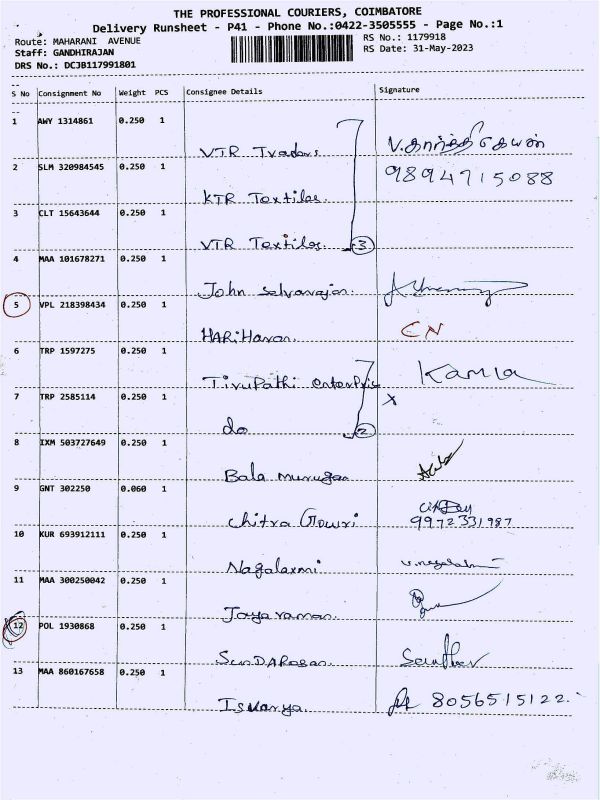 THE PROFESSIONAL COURIERS, COIMBATORE
Delivery Runsheet - P41 - Phone No.:0422-3505555 - Page No.:1
Route: MAHARANI AVENUE
Staff: GANDHIRAJAN
DRS No.: DCJB117991801
RS No.: 1179918
RS Date: 31-May-2023
S No Consignment No Weight PCS Consignee Details Signature
1 AWY 1314861 0.250 1
VTR Traders
2 SLM 320984545 0.250 1 9894715088
KTR Textiles.
3 CLT 15643644 0.250 1
VTR Textiles. 3
4 MAA 101678271 0.250 1
John selvarajan.
5 VPL 218398434 0.250 1
HARiHaran. CN
6 TRP 1597275 0.250 1 Kamla
Tirupathi enterprise
7 TRP 2585114 0.250 1 x
do 2
8 IXM 503727649 0.250 1
Bala murugan
9 GNT 302250 0.060 1
Chitra Gowri 9972331987
10 KUR 693912111 0.250 1
Nagalaxmi
11 MAA 300250042 0.250 1
Jayaraman.
12 POL 1930868 0.250 1
SunDARasan.
13 MAA 860167658 0.250 1
Iswarya. 8056515122.